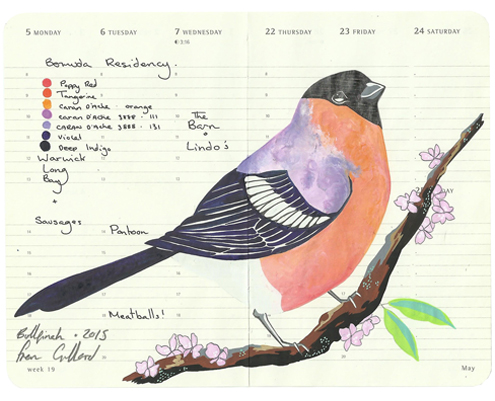 5 MONDAY
6 TUESDAY
7 WEDNESDAY
22 THURSDAY
23 FRIDAY
24 SATURDAY
Bermuda Residency.
Poppy Red
Tangerine
CARAN D'ACHE - orange
CARAN D'ACHE 3888 - 111
CARAN D'ACHE 3888 - 131
Violet
Deep Indigo
Warwick
Long
Bay
+
Sausages
The
Barn
+
Lindo's
Pantoon
Meatballs!
Bullfinch - 2015
week 19
May